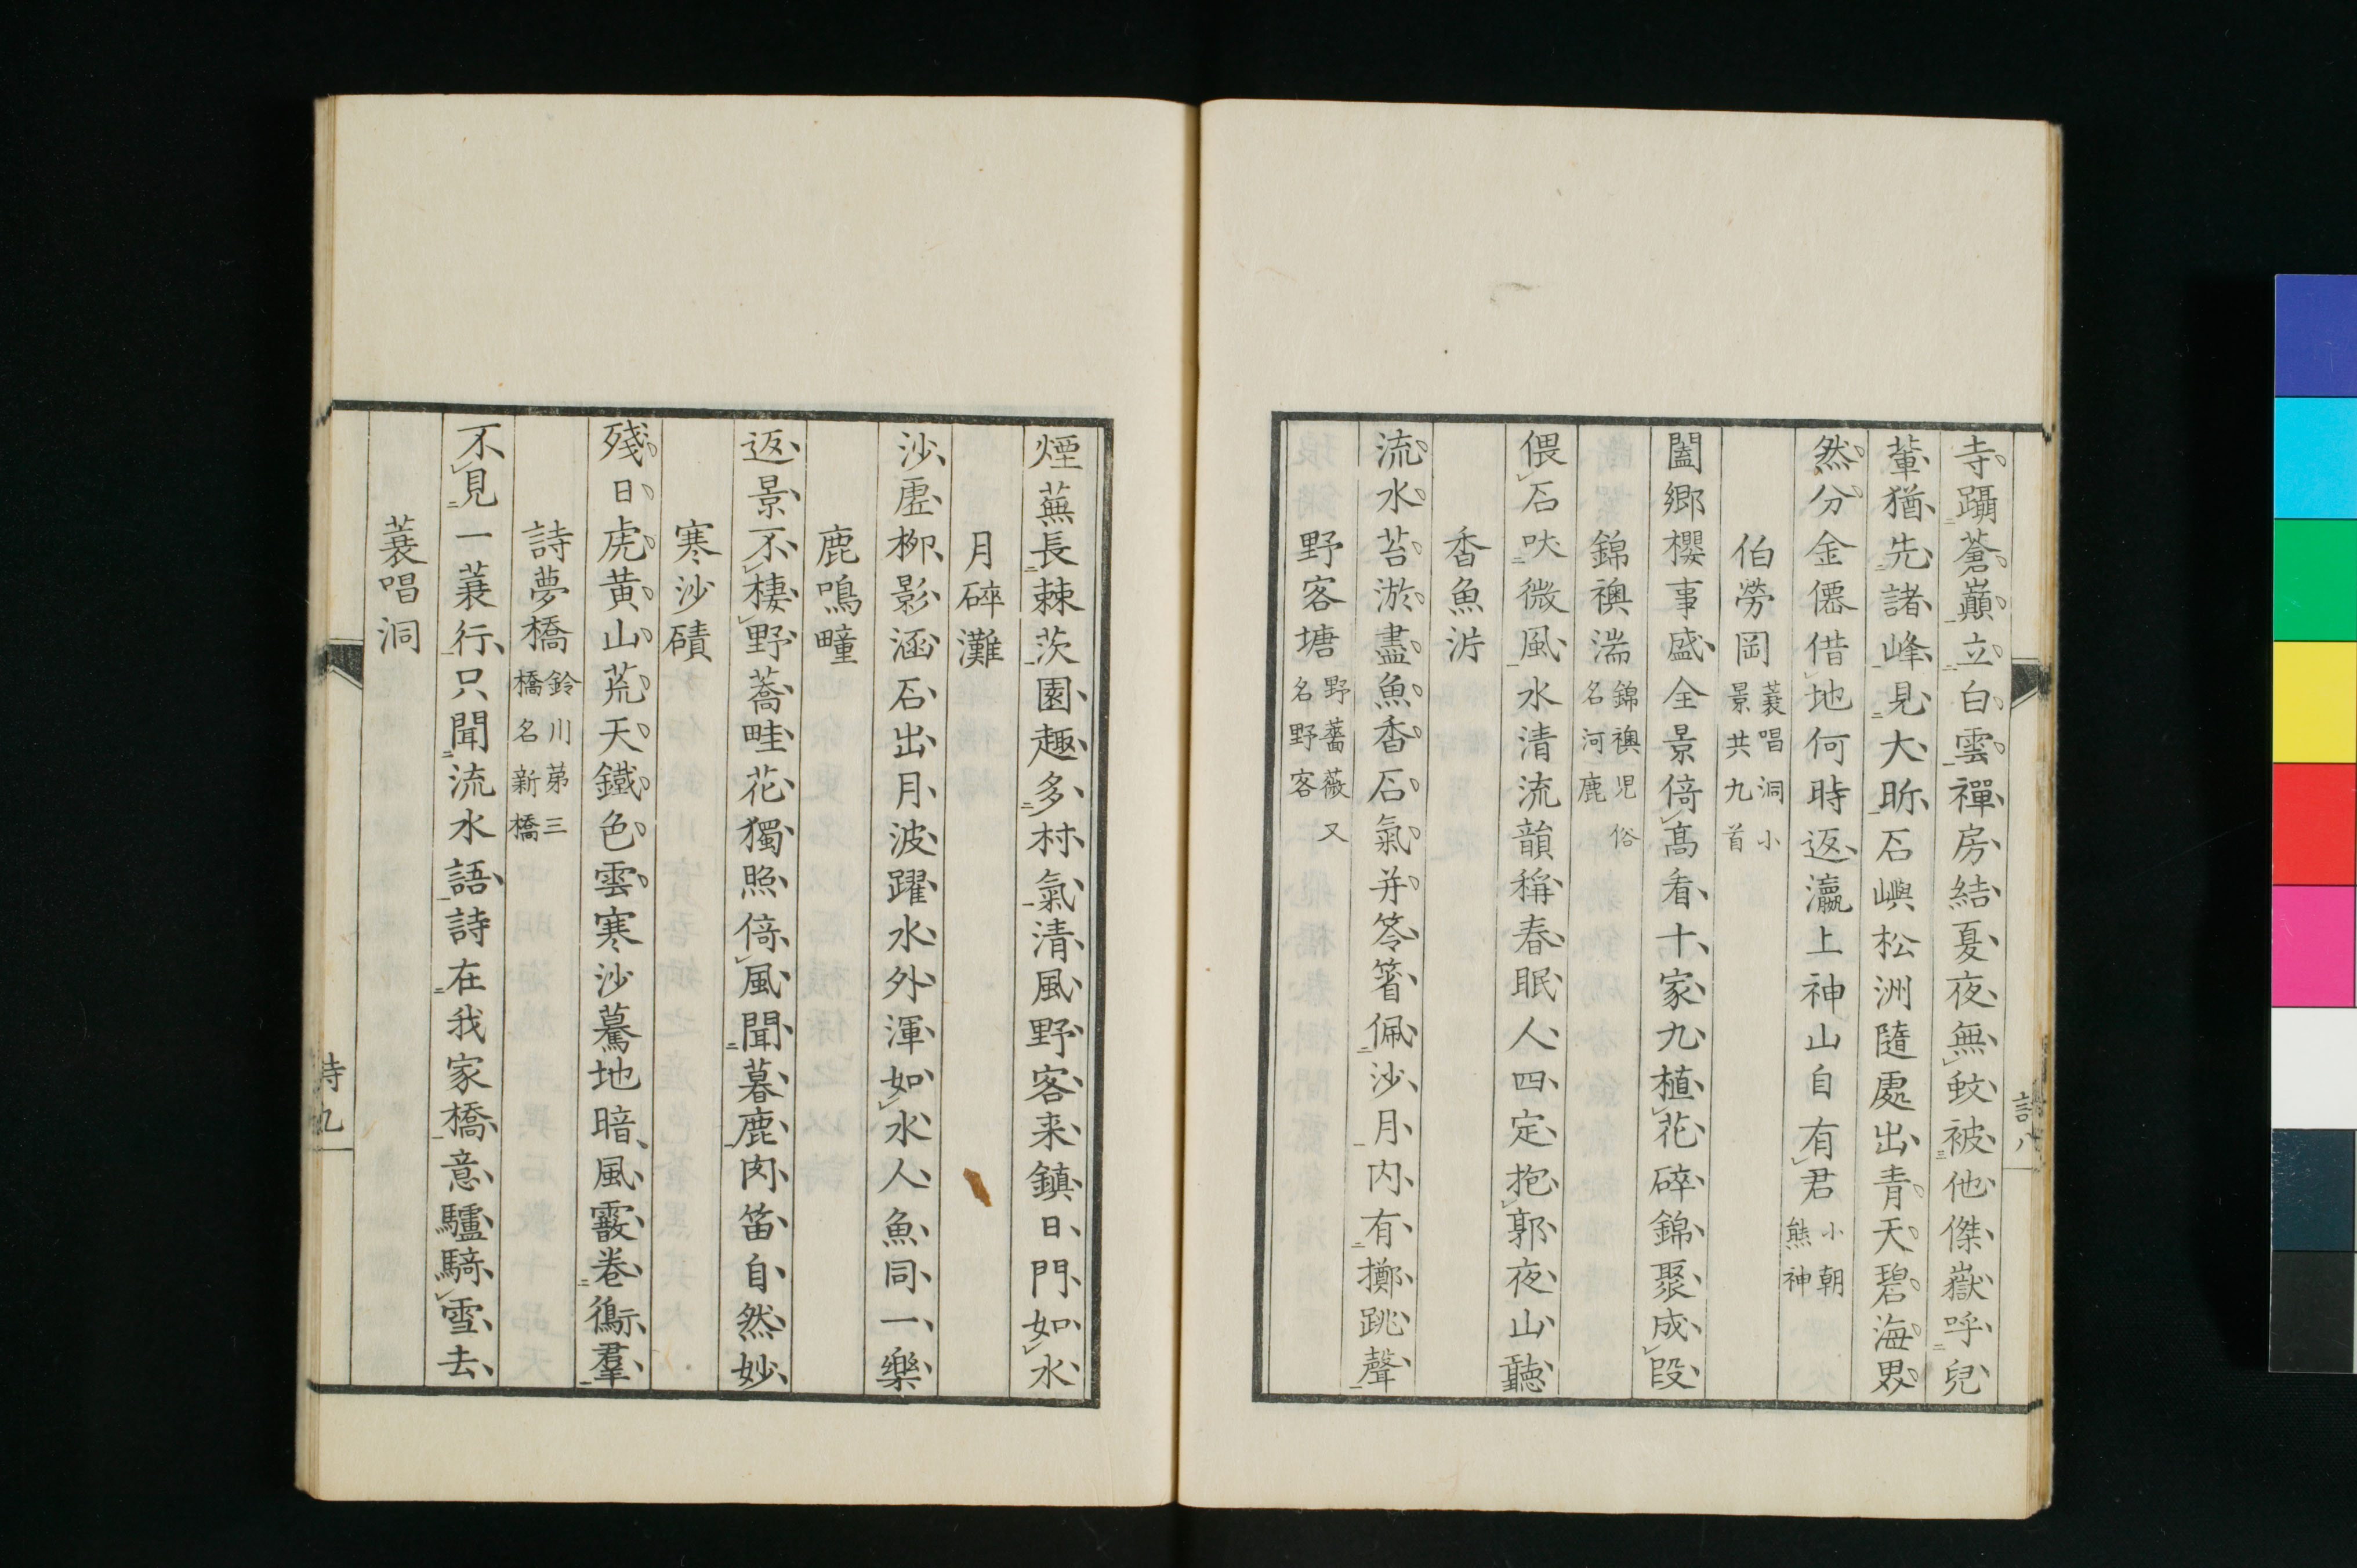 寺躡蒼巓立白雲禪房結夏夜無蚊被他傑嶽呼兒
輩猶先諸峰見大昕石嶼松洲隨處出青天碧海界
然分金僊借地何時返瀛上神山自有君小朝熊神
伯勞岡蓑唱洞小景共九首
闔郷櫻事盛全景倚高看十家九植花碎錦聚成段
錦襖湍錦襖児俗名河鹿
偎石吠微風水清流韻稱春眠人四定抱郭夜山聽
香魚泝
流水苔淤盡魚香石氣并笭箵佩沙月内有擲跳聲
野客塘野薔薇又名野客
詩八
煙蕪長棘茨園趣多村氣清風野客来鎮日門如水
月碎灘
沙虛柳影涵石出月波躍水外渾如水人魚同一樂
鹿鳴疃
返景不棲野蕎畦花獨照倚風聞暮鹿肉笛自然妙
寒沙磧
殘日虎黄山荒天鐵色雲寒沙驀地暗風霰卷鵆羣
詩夢橋鈴川苐三橋名新橋
不見一蓑行只聞流水語詩在我家橋意驢騎雪去
蓑唱洞
詩九